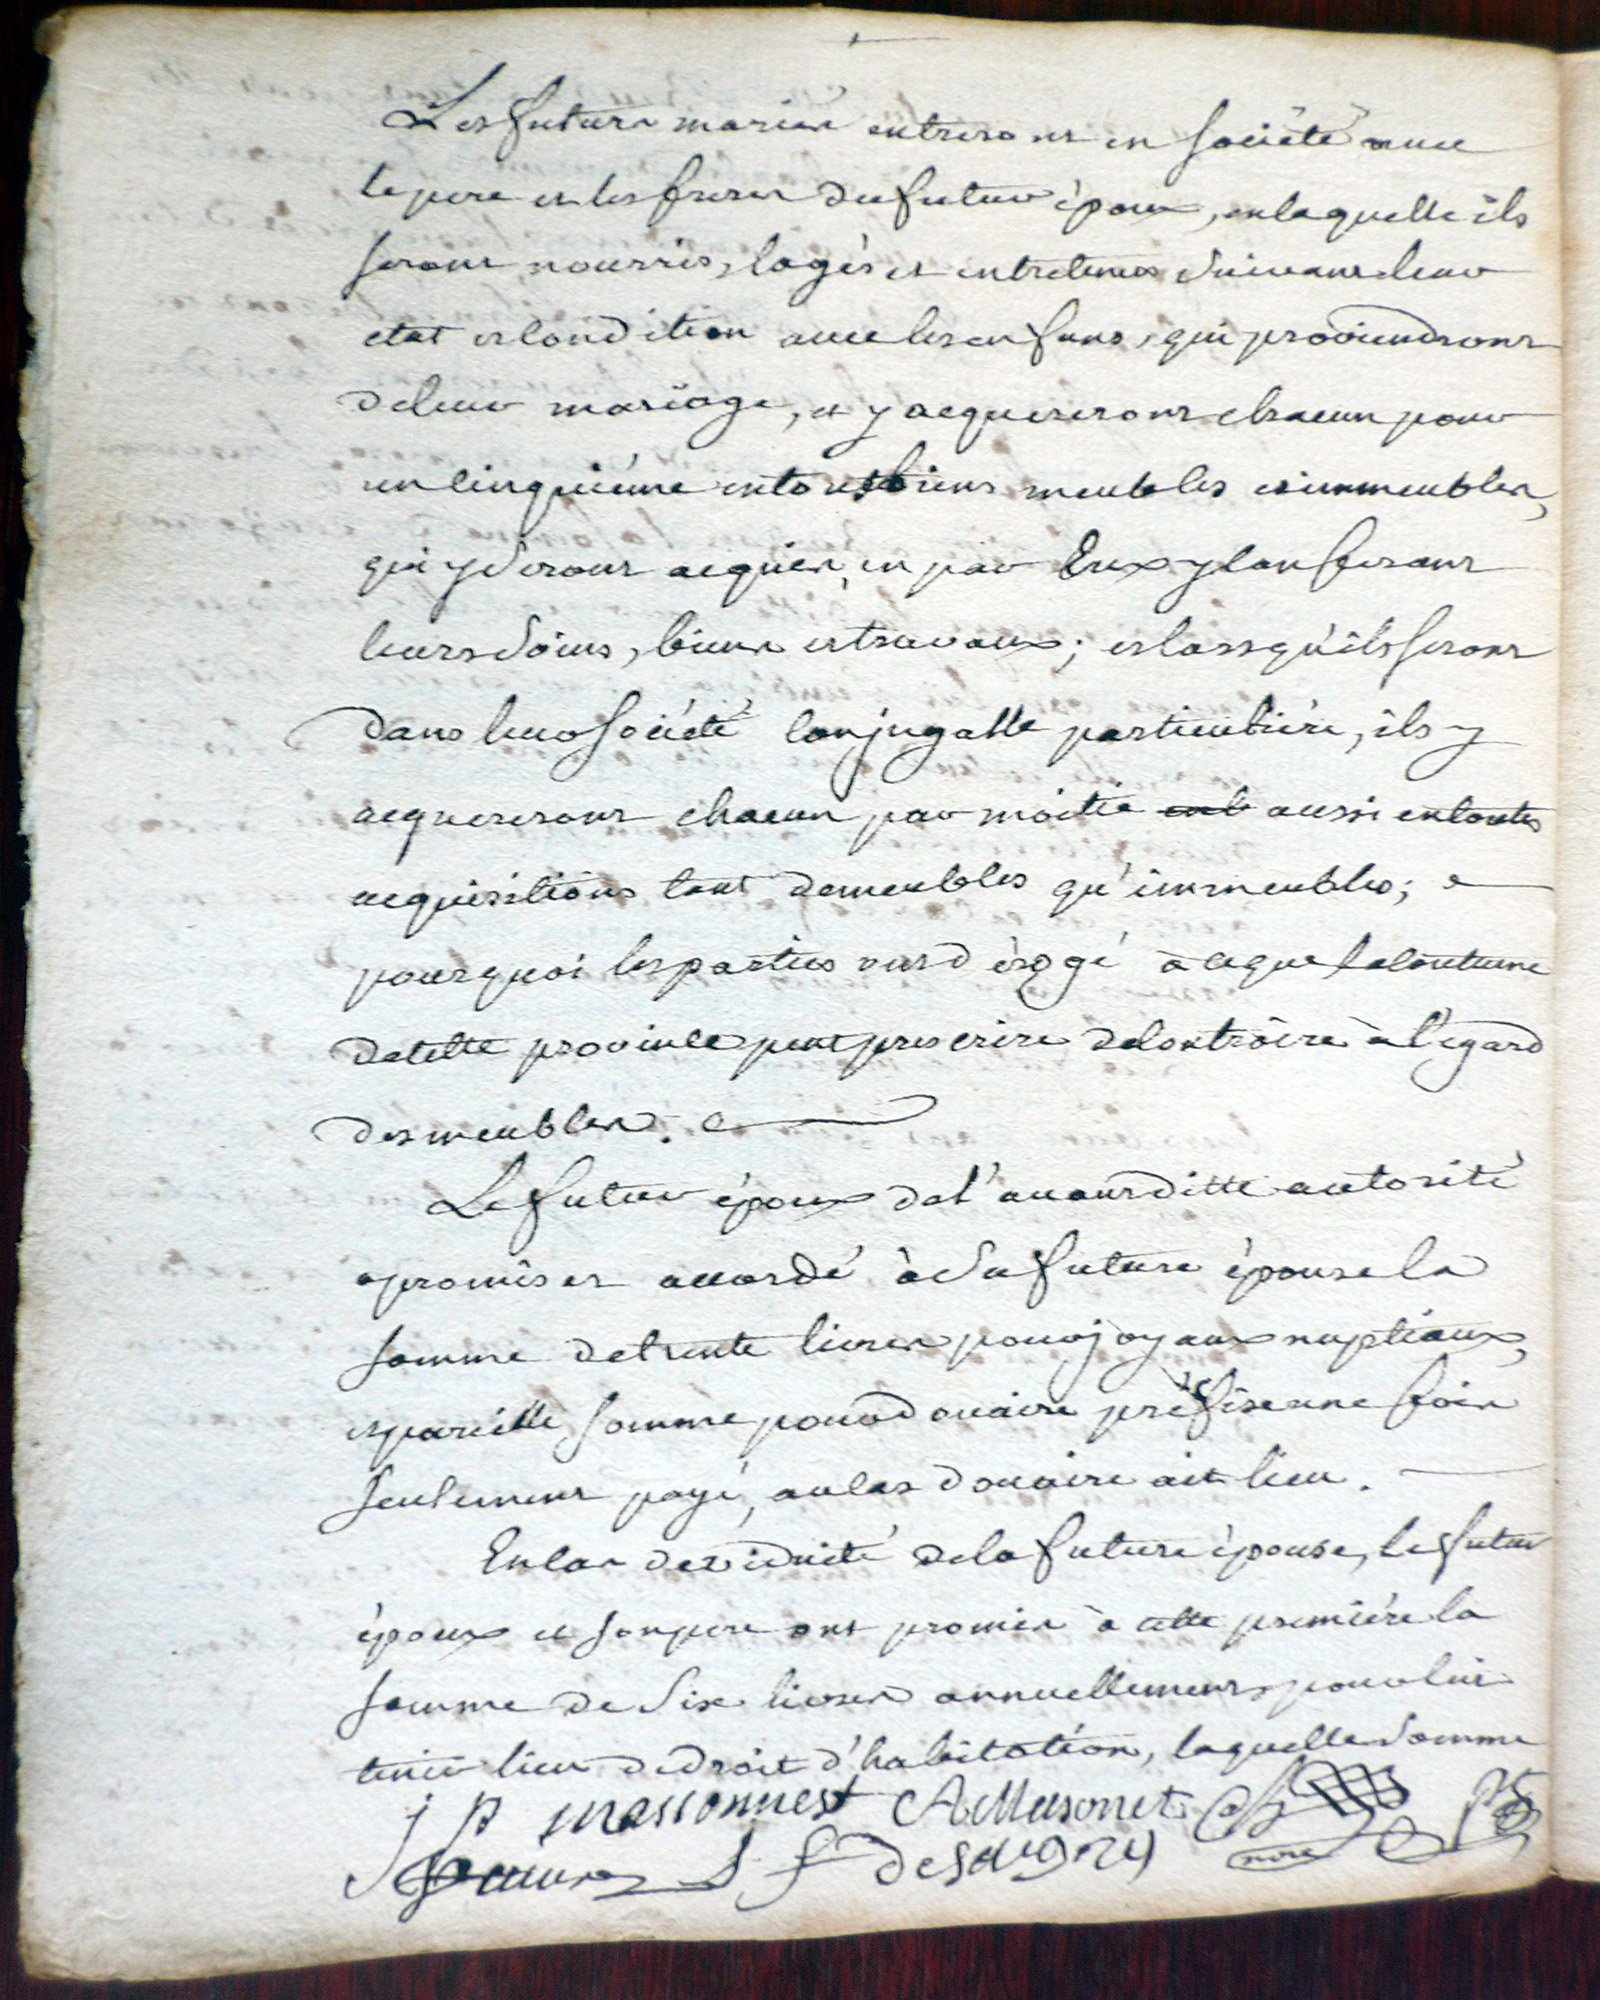 Les futurs mariés entreront en société avec
le pere et les freres du futur époux, en laquelle ils
seront nourris, logés et entretenus suivant leur
etat et condition avec les enfans, qui proviendront
de leur mariage, et y acquereront chacun pour
un cinquiéme en tous biens meubles et immeubles,
qui y seront acquis, en par Eux y conferant
leurs soins, biens et travaux; et lorsqu'ils seront
dans leur société conjugalle particuliére, ils y
acquereront chacun par moitié aussi en toutes
acquisitions tant de meubles qu'immeubles;
pourquoi les parties ont dérogé à ce que la coutume
de cette province peut prescrire de contraire à l'égard
des meubles.
Le futur époux de l'avant ditte autorité
a promis et accordé à sa future épouse la
somme de trente livres pour joyaux nuptiaux,
et pareille somme pour douaire préfix une fois
seulement payé, au cas douaire ait lieu.
En cas de viduité de la future épouse, le futur
époux et son pere ont promis à cette premiére la
somme de six livres annuellement pour lui
tenir lieu de droit d'habitation, laquelle somme
J P massonnest A Masonet
not.re